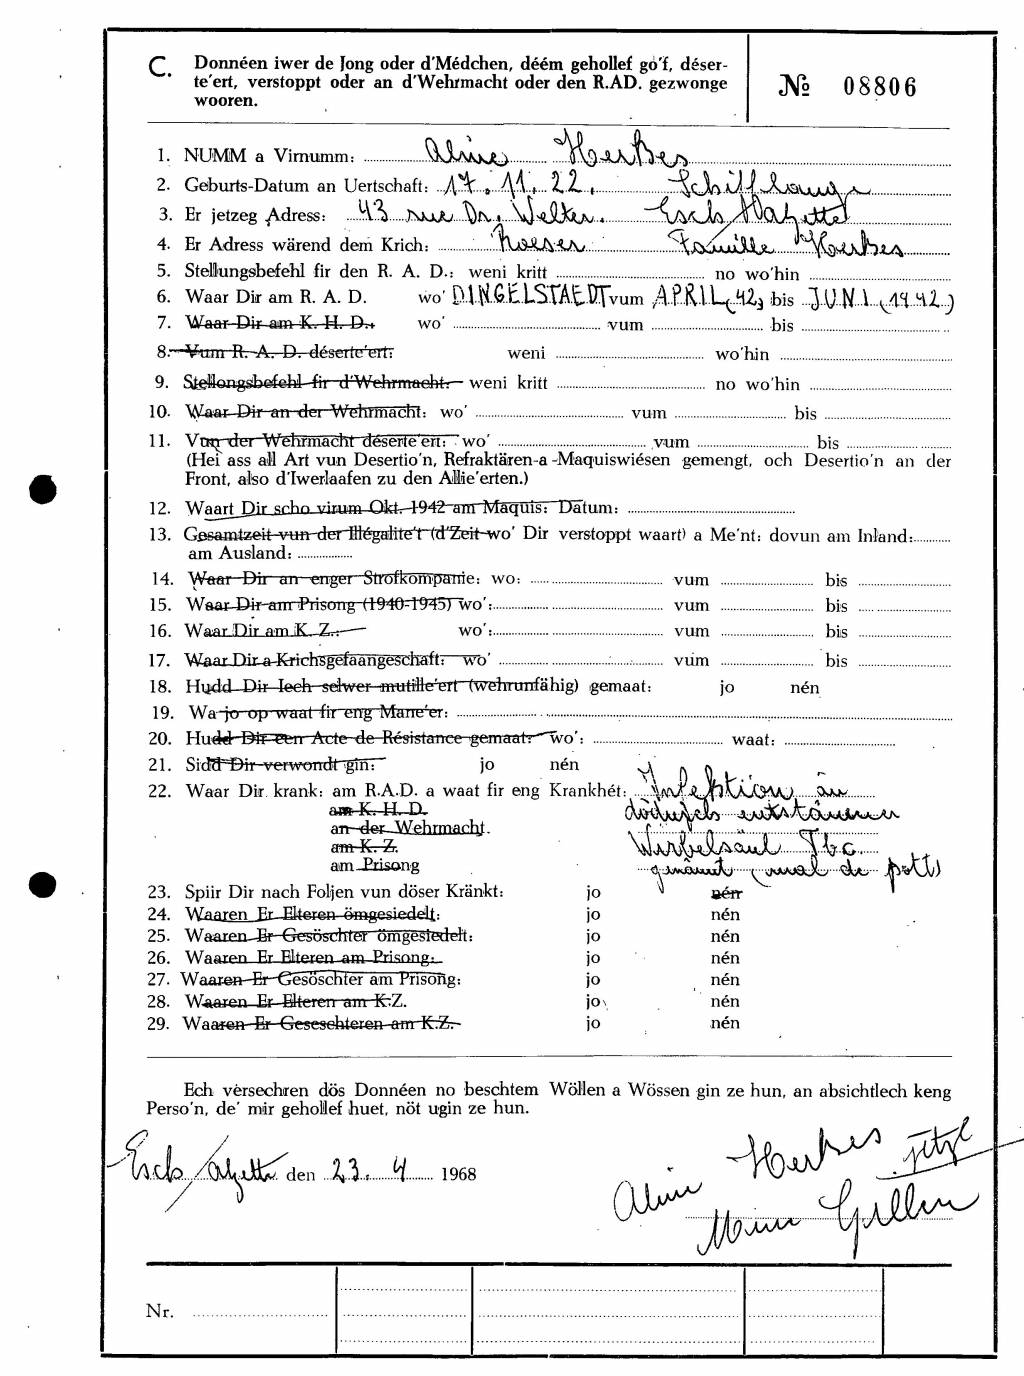 C. Donnéen iwer de Jong oder d'Médchen, déém gehollef gó'f, déser-
te'ert, verstoppt oder an d'Wehrmacht oder den R.AD. gezwonge
wooren.
№ 08806
1. NUMM a Virnumm: Aline Herbes
2. Geburts-Datum an Uertschaft: 17. 11. 22. Schifflange
3. Er jetzeg Adress: 43 rue Dr. Welter. Esch/Alzette
4. Er Adress wärend dem Krich: Roeser Famille Herbes
5. Stellungsbefehl fir den R. A. D.: weni kritt no wo'hin
6. Waar Dir am R. A. D. wo' DINGELSTAEDT vum APRIL (42) bis JUNI (1942)
7. Waar Dir am K. H. D.: wo' vum bis
8. Vum R. A. D. déserte'ert: weni wo'hin
9. Stellongsbefehl fir d'Wehrmacht: weni kritt no wo'hin
10. Waar Dir an der Wehrmacht: wo' vum bis
11. Vun der Wehrmacht déserte'ert: wo' vum bis
(Hei ass all Art vun Desertio'n, Refraktären-a-Maquiswiésen gemengt, och Desertio'n an der
Front, also d'Iwerlaafen zu den Allie'erten.)
12. Waart Dir scho virum Okt. 1942 am Maquis: Datum:
13. Gesamtzeit vun der Illégalite't (d'Zeit wo' Dir verstoppt waart) a Me'nt: dovun am Inland:
am Ausland:
14. Waar Dir an enger Strofkompanie: wo: vum bis
15. Waar Dir am Prisong (1940-1945) wo': vum bis
16. Waar Dir am K. Z.: wo': vum bis
17. Waar Dir a Krichsgefaangeschaft: wo' vum bis
18. Hudd Dir Iech selwer mutille'ert (wehrunfähig) gemaat: jo nén
19. Wa jo op waat fir eng Mane'er:
20. Hudd Dir een Acte de Résistance gemaat: wo': waat:
21. Sidd Dir verwondt gin: jo nén
22. Waar Dir krank: am R.A.D. a waat fir eng Krankhét: Infektion an
am K. H. D. dodurch entstanener
an der Wehrmacht. Wirbelsäul Tbc.
am K. Z.
am Prisong genannt (mal de pott)
23. Spiir Dir nach Foljen vun döser Kränkt: jo nén
24. Waaren Er Elteren ömgesiedelt: jo nén
25. Waaren Er Gesöschter ömgesiedelt: jo nén
26. Waaren Er Elteren am Prisong: jo nén
27. Waaren Er Gesöschter am Prisong: jo nén
28. Waaren Er Elteren am K.Z. jo nén
29. Waaren Er Geseschteren am K.Z. jo nén
Ech vérsechren dös Donnéen no beschtem Wöllen a Wössen gin ze hun, an absichtlech keng
Perso'n, de' mir gehollef huet, nöt ugin ze hun.
Esch/Alzette den 23. 4 1968
Aline Herbes jetzt
Gillen
Nr.